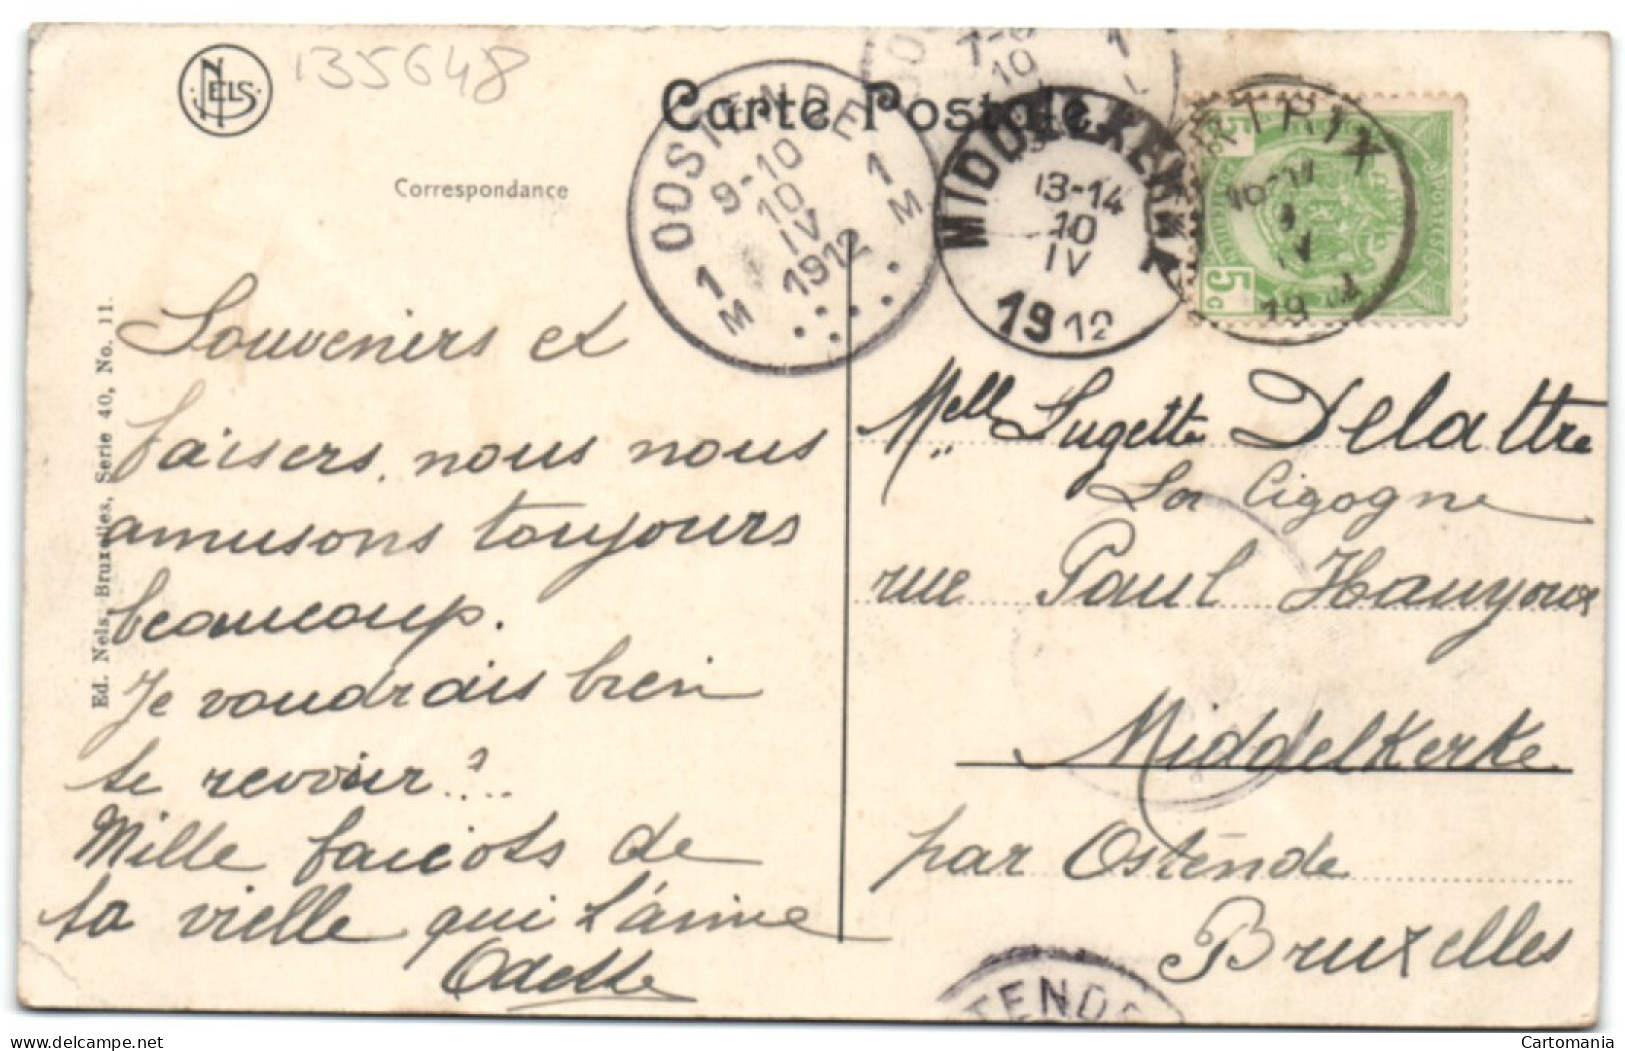 NELS
135648
Carte Postale
Correspondance
OOSTENDE
9-10
10
IV
1912
1 M
1 M
1
10
MIDDELKERKE
13-14
10
IV
1912
5c
5c
Souveniers et
baisers, nous nous
amusons toujours
beaucoup.
Je voudrais bien
te revoir?...
Mille baicots de
ta vielle qui t'aime
Odette
Ed. Nels, Bruxelles, Serie 40, No. 11.
Melle Sugette Delattre
La Cigogne
rue Paul Hauyoux
Middelkerke
par Ostende
Bruxelles
TENDE
Cartomania